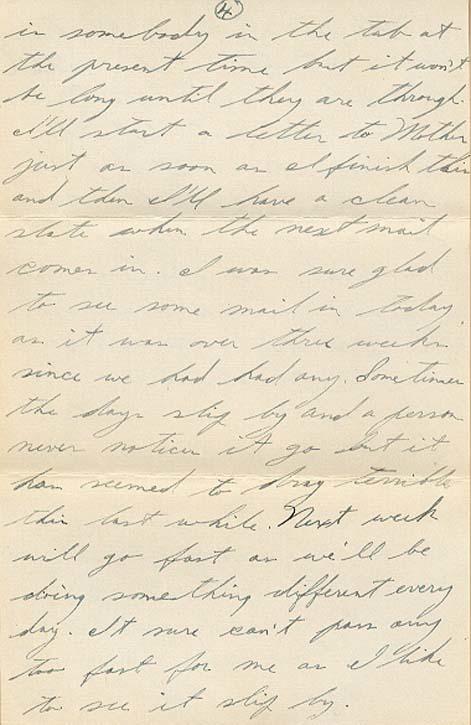 4
is somebody in the tub at
the present time but it won't
be long until they are through.
I'll start a letter to Mother
just as soon as I finish this
and then I'll have a clean
slate when the next mail
comes in. I was sure glad
to see some mail in today
as it was over three weeks
since we had had any. Sometimes
the days slip by and a person
never notices it go but it
has seemed to drag terrible
this last while. Next week
will go fast as we'll be
doing something different every
day. It sure can't pass any
too fast for me as I like
to see it slip by.